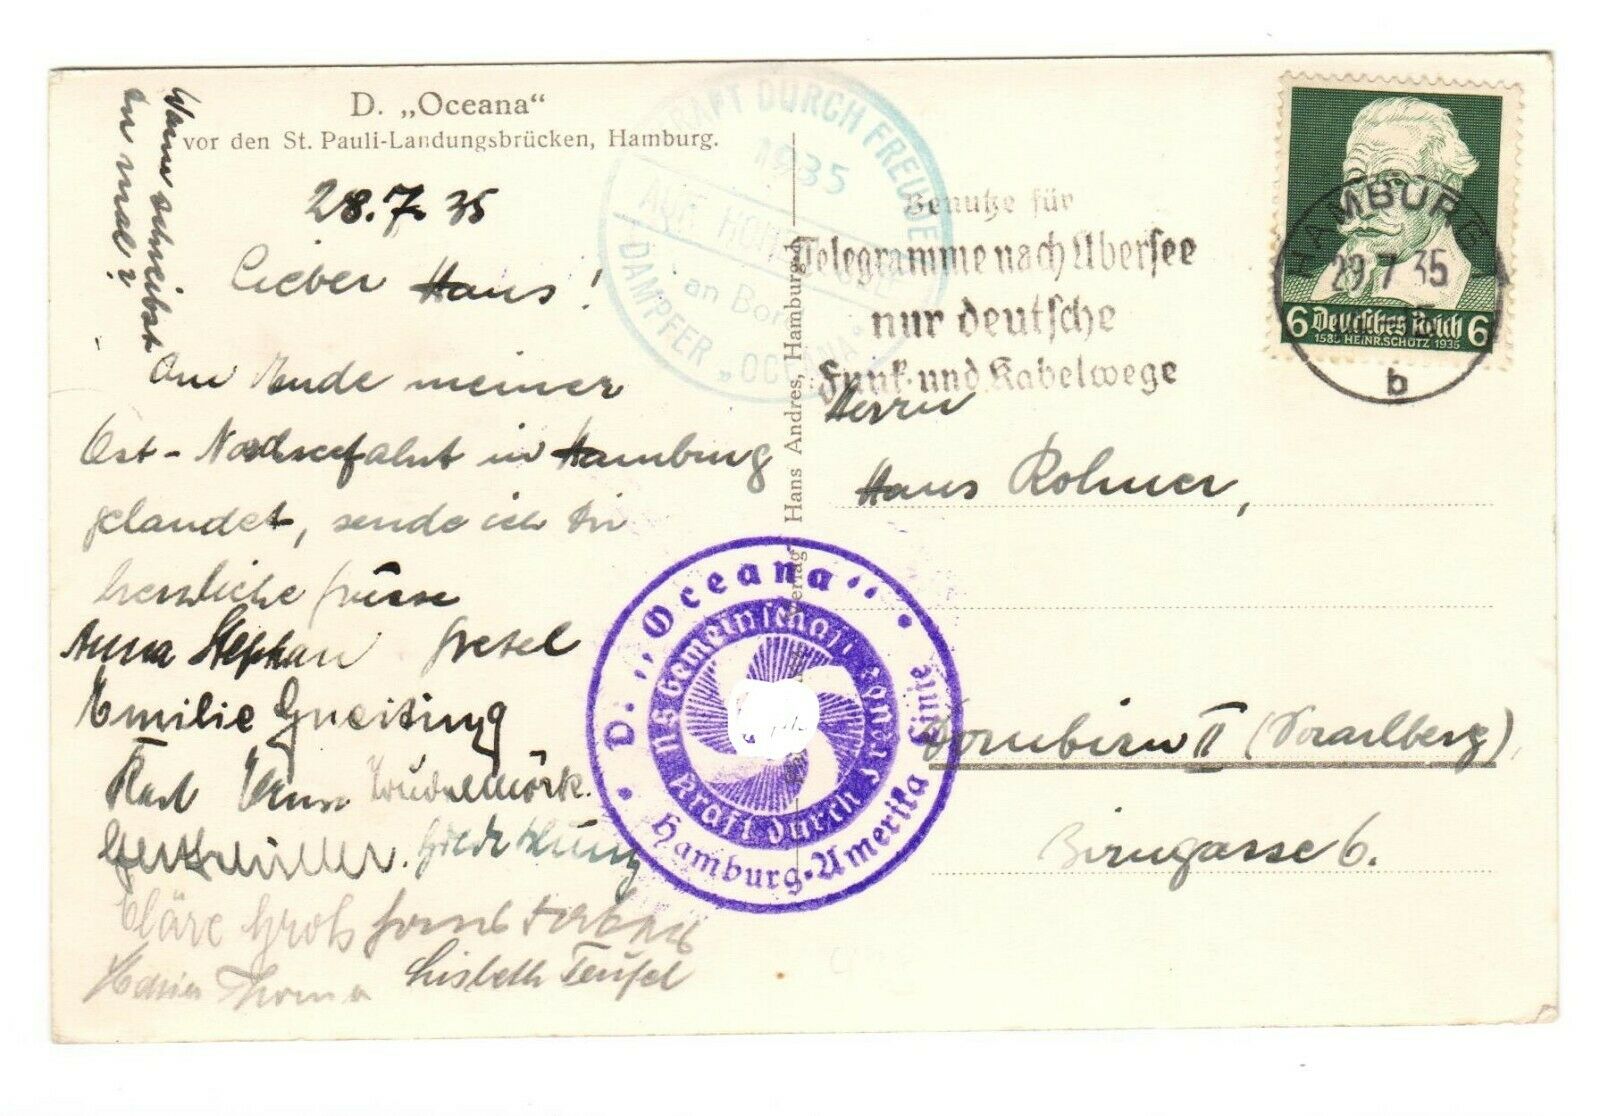 D. „Oceana“
vor den St. Pauli-Landungsbrücken, Hamburg.
Wann schreibst
du mal?
28.7.35
Lieber Hans!
Am Ende meiner
Ost-Nordseefahrt in Hamburg
gelandet, sende ich Dir
herzliche Grüsse
Anna Stephan Gretel
Emilie
Kläre Groß
Thoma Lisbeth Teufel
KRAFT DURCH FREUDE
1935
AUF HOHER SEE
an Bord
DAMPFER „OCEANA“
Benutze für
Telegramme nach Übersee
nur deutsche
Funk- und Kabelwege
HAMBURG 1
29.7.35
b
6 Deutsches Reich 6
1585 HEINR.SCHÜTZ 1935
Verlag Hans Andres, Hamburg
D. „Oceana“
Hamburg-Amerika Linie
NS Gemeinschaft
Kraft durch Freude
Herrn
Hans Rohner,
Dornbirn II (Vorarlberg),
Birngasse 6.